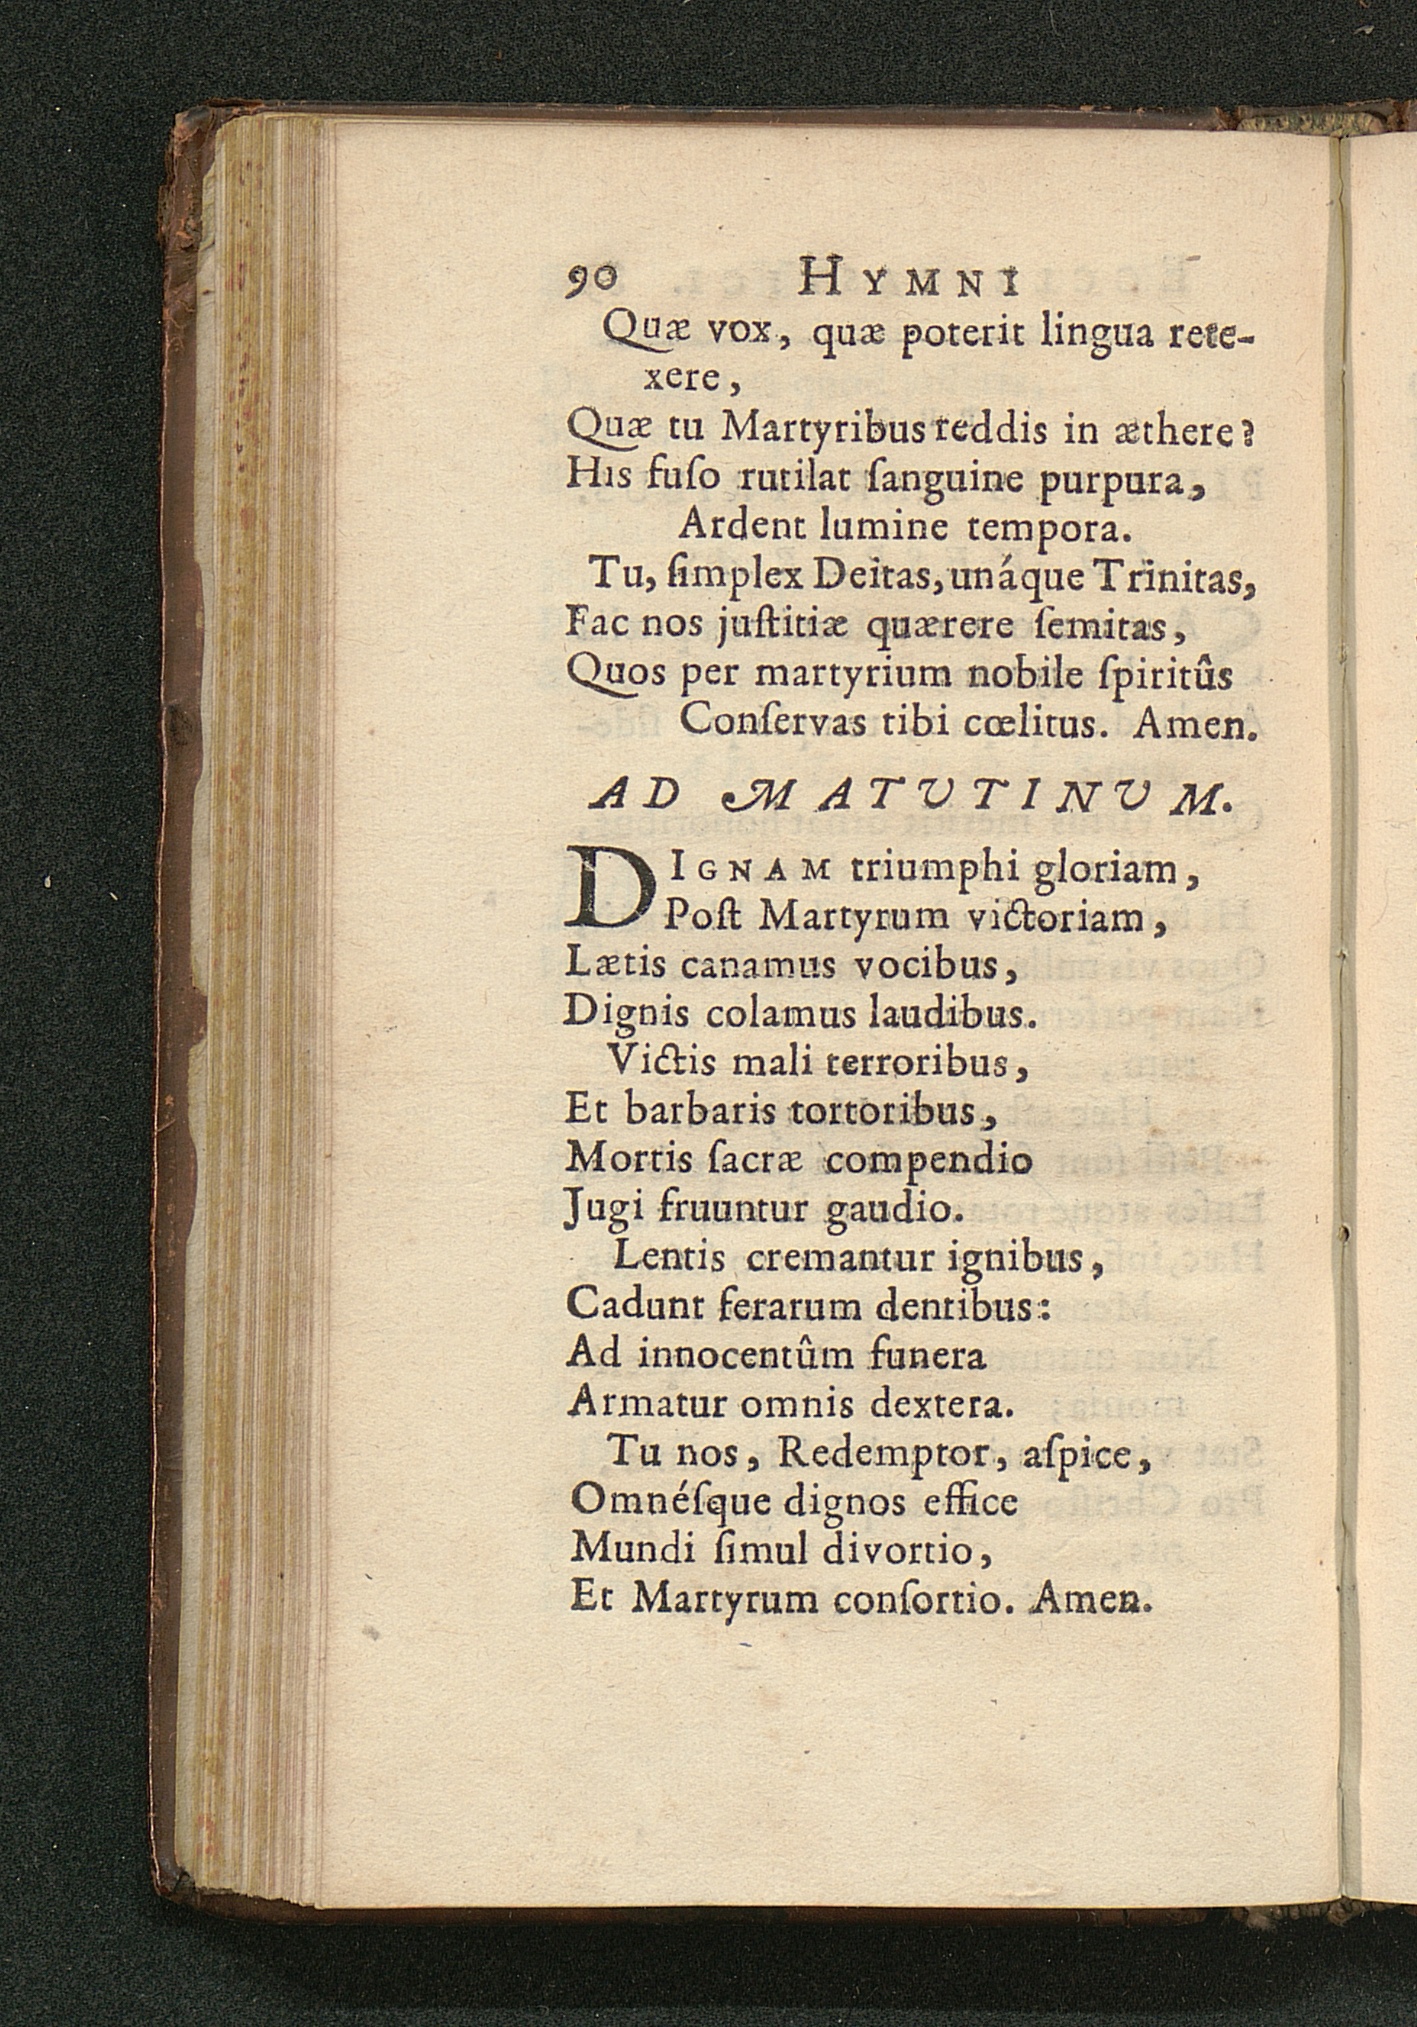 90 HYMNI
Quæ vox, quæ poterit lingua rete-
xere,
Quæ tu Martyribus reddis in æthere?
His fuſo rutilat ſanguine purpura,
Ardent lumine tempora.
Tu, ſimplex Deitas, unáque Trinitas,
Fac nos juſtitiæ quærere ſemitas,
Quos per martyrium nobile ſpiritûs
Conſervas tibi cœlitus. Amen.
AD MATUTINUM.
DIGNAM triumphi gloriam,
Poſt Martyrum victoriam,
Lætis canamus vocibus,
Dignis colamus laudibus.
Victis mali terroribus,
Et barbaris tortoribus,
Mortis ſacræ compendio
Jugi fruuntur gaudio.
Lentis cremantur ignibus,
Cadunt ferarum dentibus:
Ad innocentûm funera
Armatur omnis dextera.
Tu nos, Redemptor, aſpice,
Omnéſque dignos effice
Mundi ſimul divortio,
Et Martyrum conſortio. Amen.